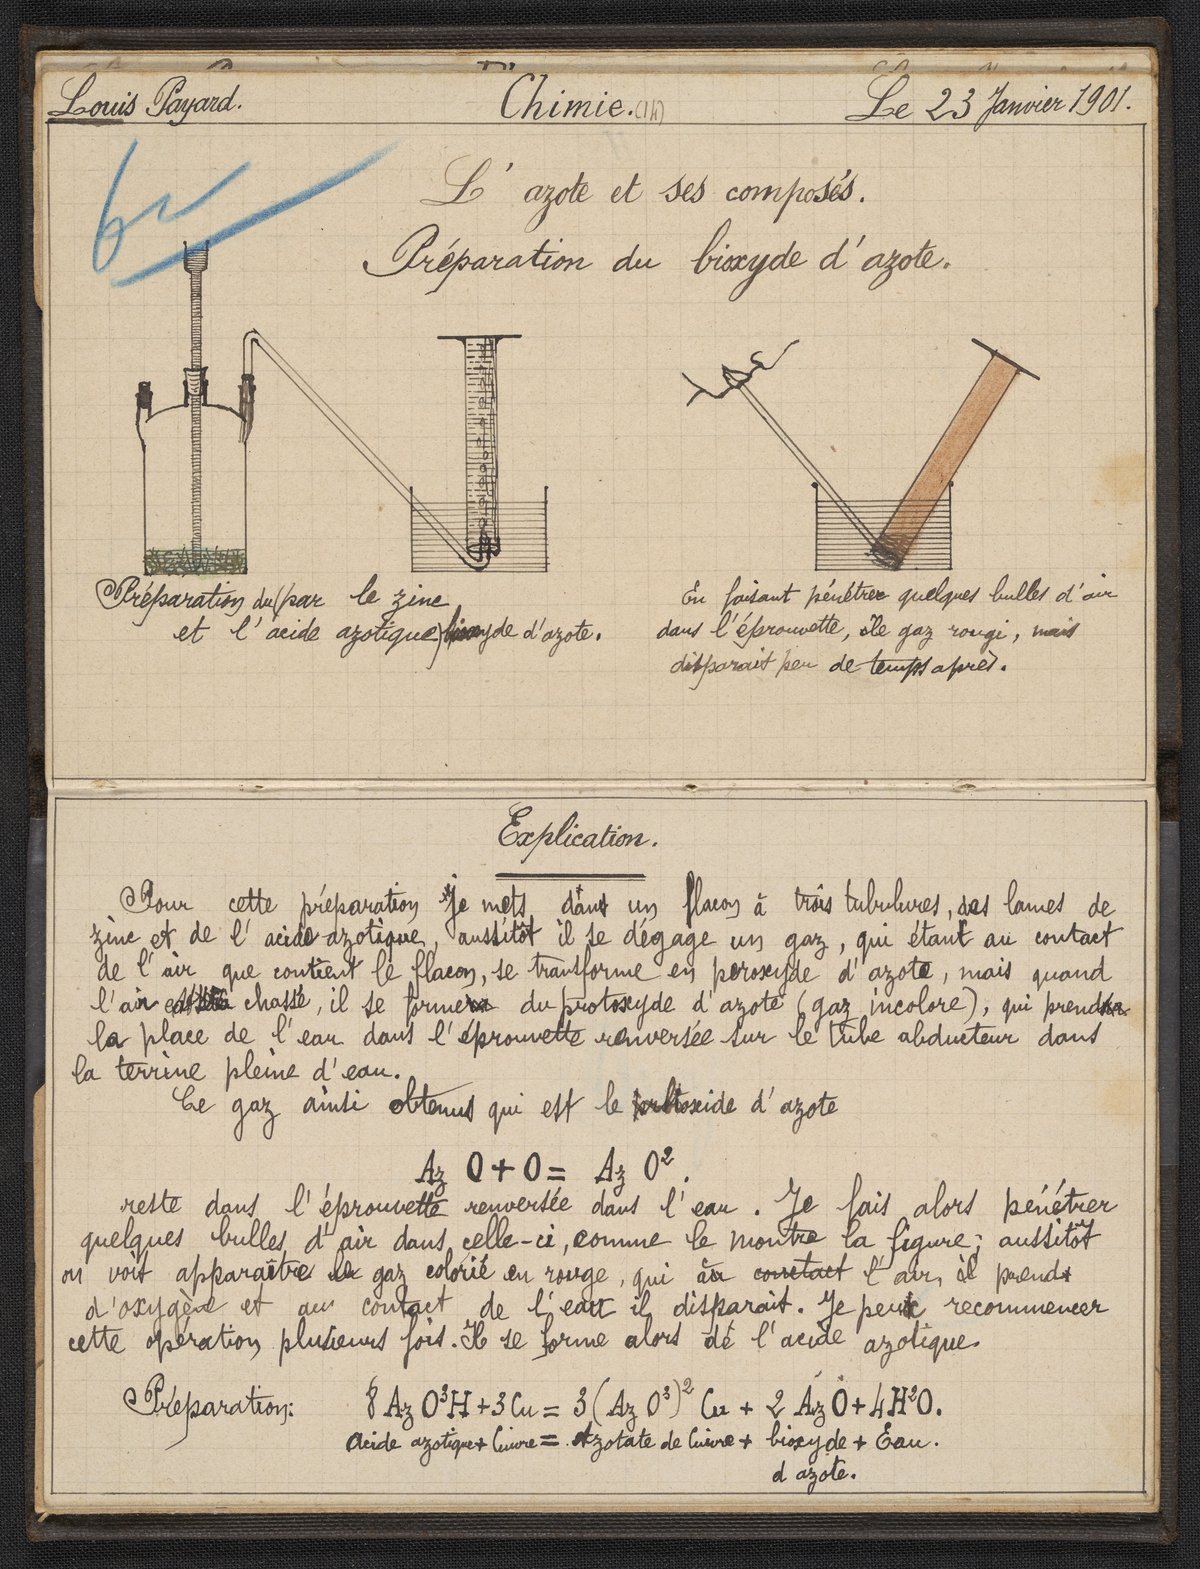 Louis Payard.
Chimie. (1h)
Le 23 Janvier 1901.
L' azote et ses composés.
Préparation du bioxyde d'azote.
Préparation du (par le zinc
et l'acide azotique) bioxyde d'azote.
En faisant pénétrer quelques bulles d'air
dans l'éprouvette, le gaz rougi, mais
disparait peu de temps après.
Explication.
Pour cette préparation je mets dans un flacon à trois tubulures, des lames de
zinc et de l'acide azotique, aussitôt il se dégage un gaz, qui étant au contact
de l'air que contient le flacon, se transforme en peroxyde d'azote, mais quand
l'air est chassé, il se forme du protoxyde d'azote (gaz incolore), qui prend
la place de l'eau dans l'éprouvette renversée sur le tube abducteur dans
la terrine pleine d'eau.
Ce gaz ainsi obtenus qui est le d'azote
Az O + O = Az O².
reste dans l'éprouvette renversée dans l'eau. Je fais alors pénétrer
quelques bulles d'air dans celle-ci, comme le montre la figure; aussitôt
on voit apparaître le gaz colorié en rouge, qui au contact l'air, il prend
d'oxygène et au contact de l'eau il disparait. Je peux recommencer
cette opération plusieurs fois. Il se forme alors de l'acide azotique.
Préparation: 8 Az O³H + 3 Cu = 3 (Az O³)² Cu + 2 Az O + 4 H²O.
Acide azotique + Cuivre = Azotate de Cuivre + bioxyde + Eau.
d azote.